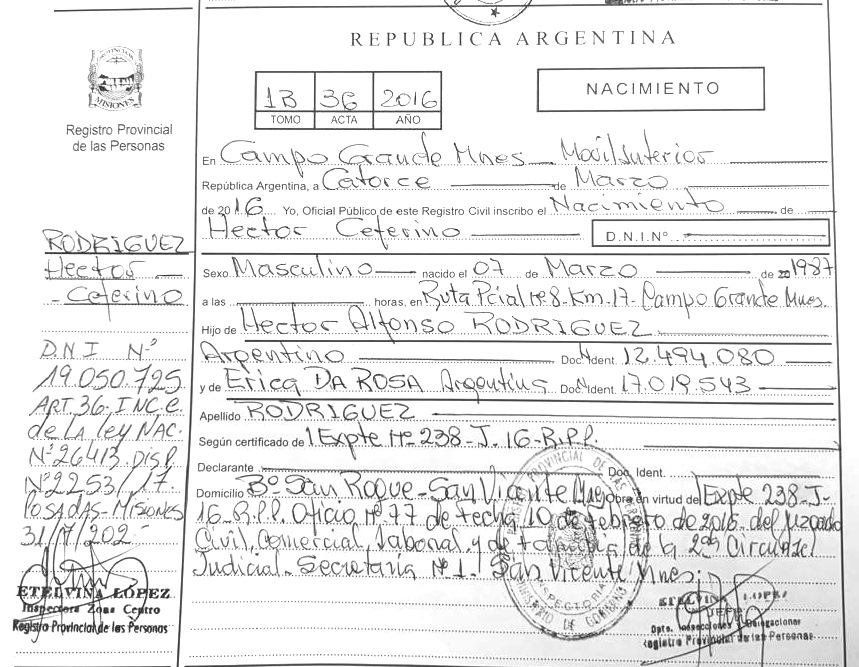 REPUBLICA ARGENTINA
PROVINCIA
MISIONES
Registro Provincial
de las Personas
1B 36 2016
TOMO ACTA AÑO
NACIMIENTO
En Campo Grande Mnes Movil Interior
República Argentina, a Catorce de Marzo
de 2016 Yo, Oficial Público de este Registro Civil inscribo el Nacimiento de
Hector Ceferino D.N.I.Nº
Sexo Masculino nacido el 07 de Marzo de 1987
a las horas, en Ruta Pcial Nº 8 - Km. 17 - Campo Grande Mnes.
Hijo de Hector Alfonso RODRIGUEZ
Argentino Doc. Ident. 12.494.080
y de Erica DA ROSA Argentina Doc. Ident. 17.019.543
Apellido RODRIGUEZ
Según certificado de Expte Nº 238-J-16-R.P.P.
Declarante Doc. Ident.
Domicilio Bº San Roque - San Vicente Mnes Obra en virtud del Expte 238-J-
16-R.P.P. Oficio Nº 77 de fecha 10 de febrero de 2016 del Juzgado
Civil, Comercial, Laboral y de Familia de la 2da Circunscr
Judicial - Secretaría Nº 1 - San Vicente Mnes.
RODRIGUEZ
Hector
- Ceferino
D.N.I Nº
19.050.725
ART. 36 - INC. e.
de LA Ley NAC.
Nº 26413 DISP.
Nº 2253/17.
POSADAS - MISIONES
31/7/202
ETELVINA LOPEZ
Inspectora Zona Centro
Registro Provincial de las Personas
ETELVINA LOPEZ
JEFE
Dpto. Inspecciones y Delegaciones
Registro Provincial de las Personas